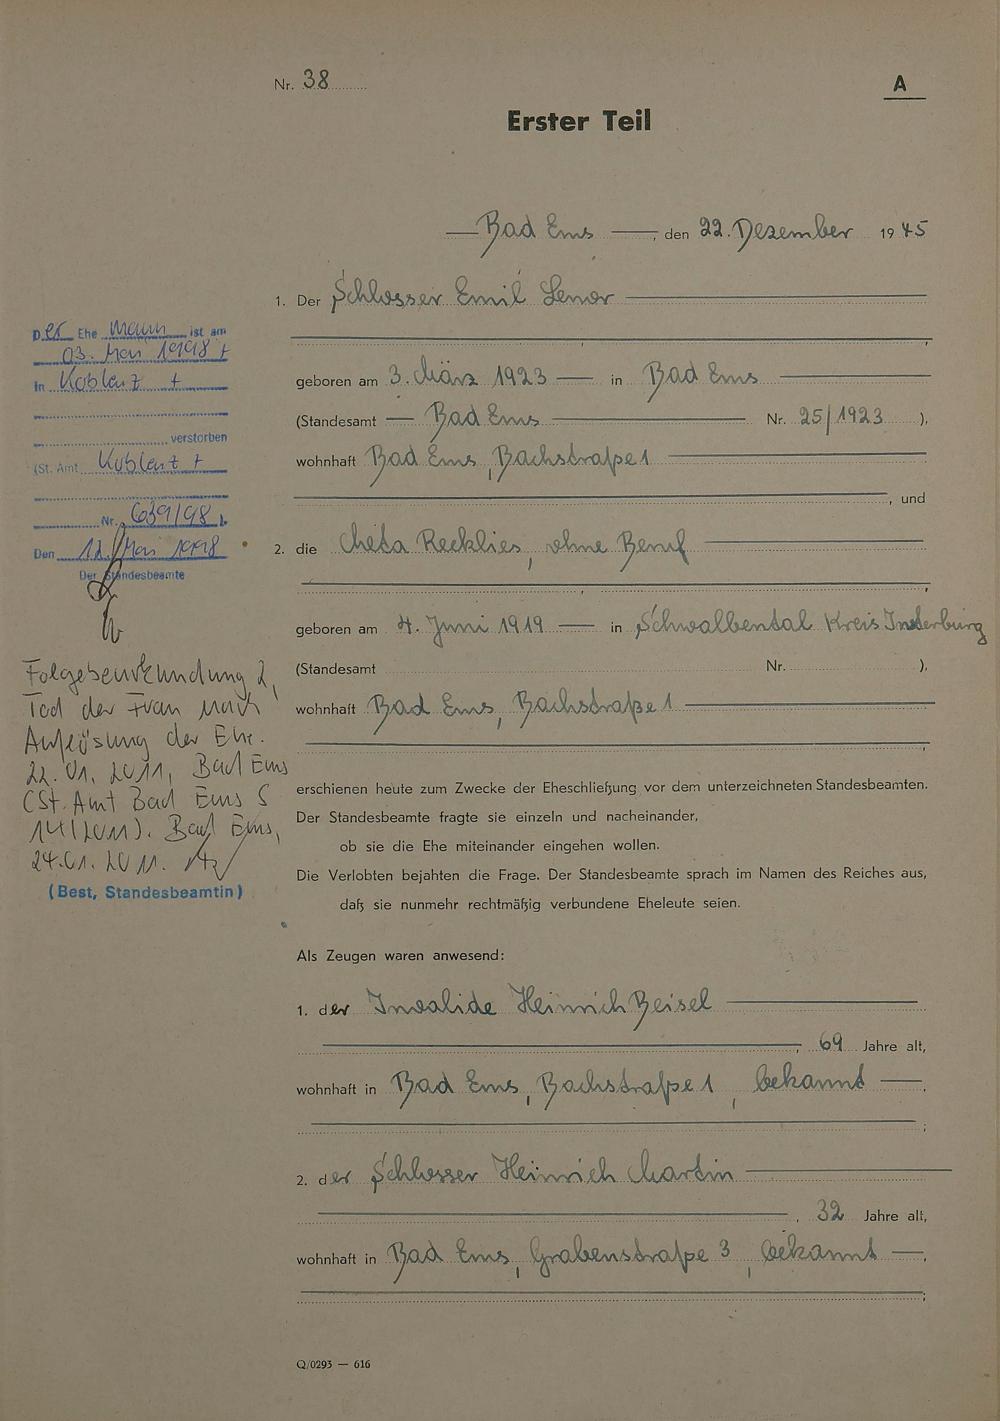 Nr. 38
A
Erster Teil
Bad Ems, den 22. Dezember 1945
1. Der Schlosser Emil Lenor
geboren am 3. März 1923 in Bad Ems
(Standesamt Bad Ems Nr. 25/1923 ),
wohnhaft Bad Ems, Bachstraße 1
, und
2. die Meta Recklies, ohne Beruf
geboren am 4. Juni 1919 in Schwalbental Kreis Insterburg
(Standesamt Nr. ),
wohnhaft Bad Ems, Bachstraße 1
erschienen heute zum Zwecke der Eheschließung vor dem unterzeichneten Standesbeamten.
Der Standesbeamte fragte sie einzeln und nacheinander,
ob sie die Ehe miteinander eingehen wollen.
Die Verlobten bejahten die Frage. Der Standesbeamte sprach im Namen des Reiches aus,
daß sie nunmehr rechtmäßig verbundene Eheleute seien.
Als Zeugen waren anwesend:
1. der Invalide Heinrich Beisel
, 69 Jahre alt,
wohnhaft in Bad Ems, Bachstraße 1, bekannt
;
2. der Schlosser Heinrich Martin
, 32 Jahre alt,
wohnhaft in Bad Ems, Grabenstraße 3, bekannt
;
Q/0293 — 616
Der Ehe Mann ist am
03. Mai 1998 +
in Koblenz +
verstorben
(St. Amt Koblenz +
Nr. 639/98 ).
Den 12. Mai 1998
Der Standesbeamte
Folgebeurkundung 2,
Tod der Frau nach
Auflösung der Ehe.
22.01.2011, Bad Ems
(St. Amt Bad Ems S
14/2011). Bad Ems,
24.01.2011.
(Best, Standesbeamtin)